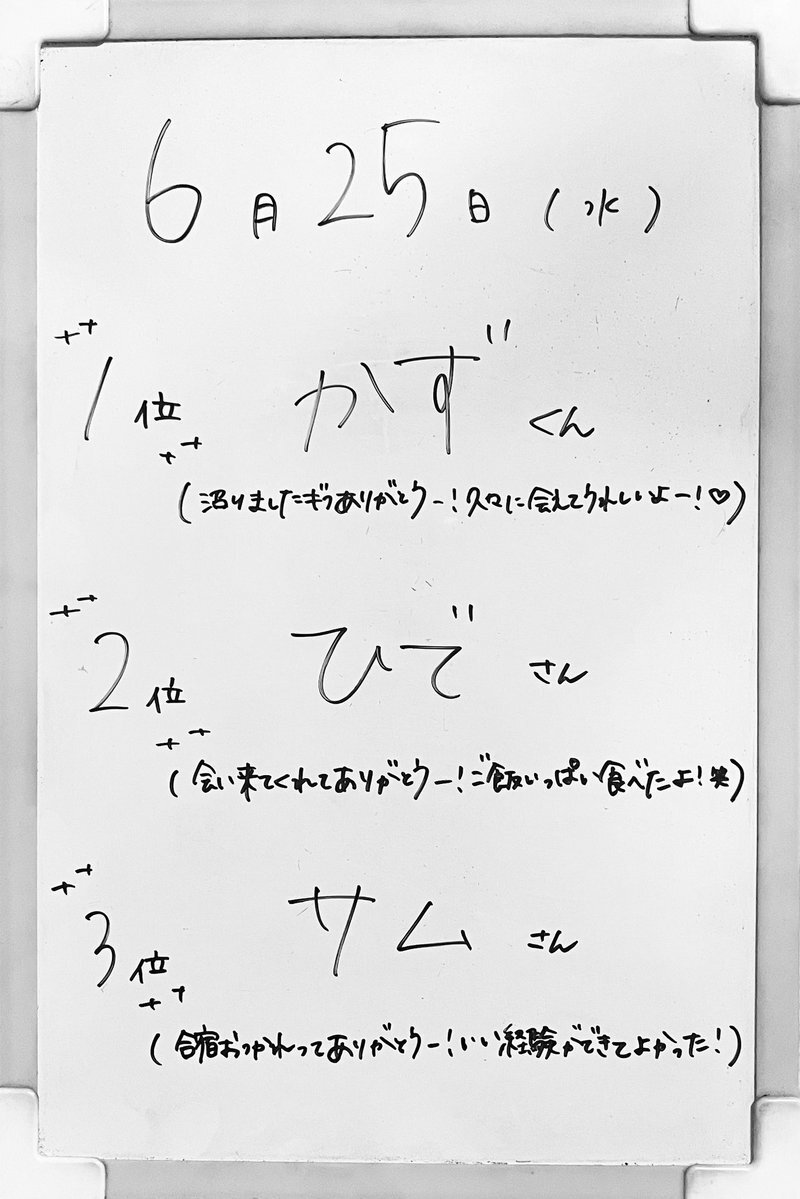 6月25日(水)
1位 かずくん
(沼りましたギフありがとうー!久々に会えてうれしいよー!♡)
2位 ひでさん
(会い来てくれてありがとうー!ご飯いっぱい食べたよ!笑)
3位 サムさん
(合宿おつかれってありがとうー!いい経験ができてよかった!)